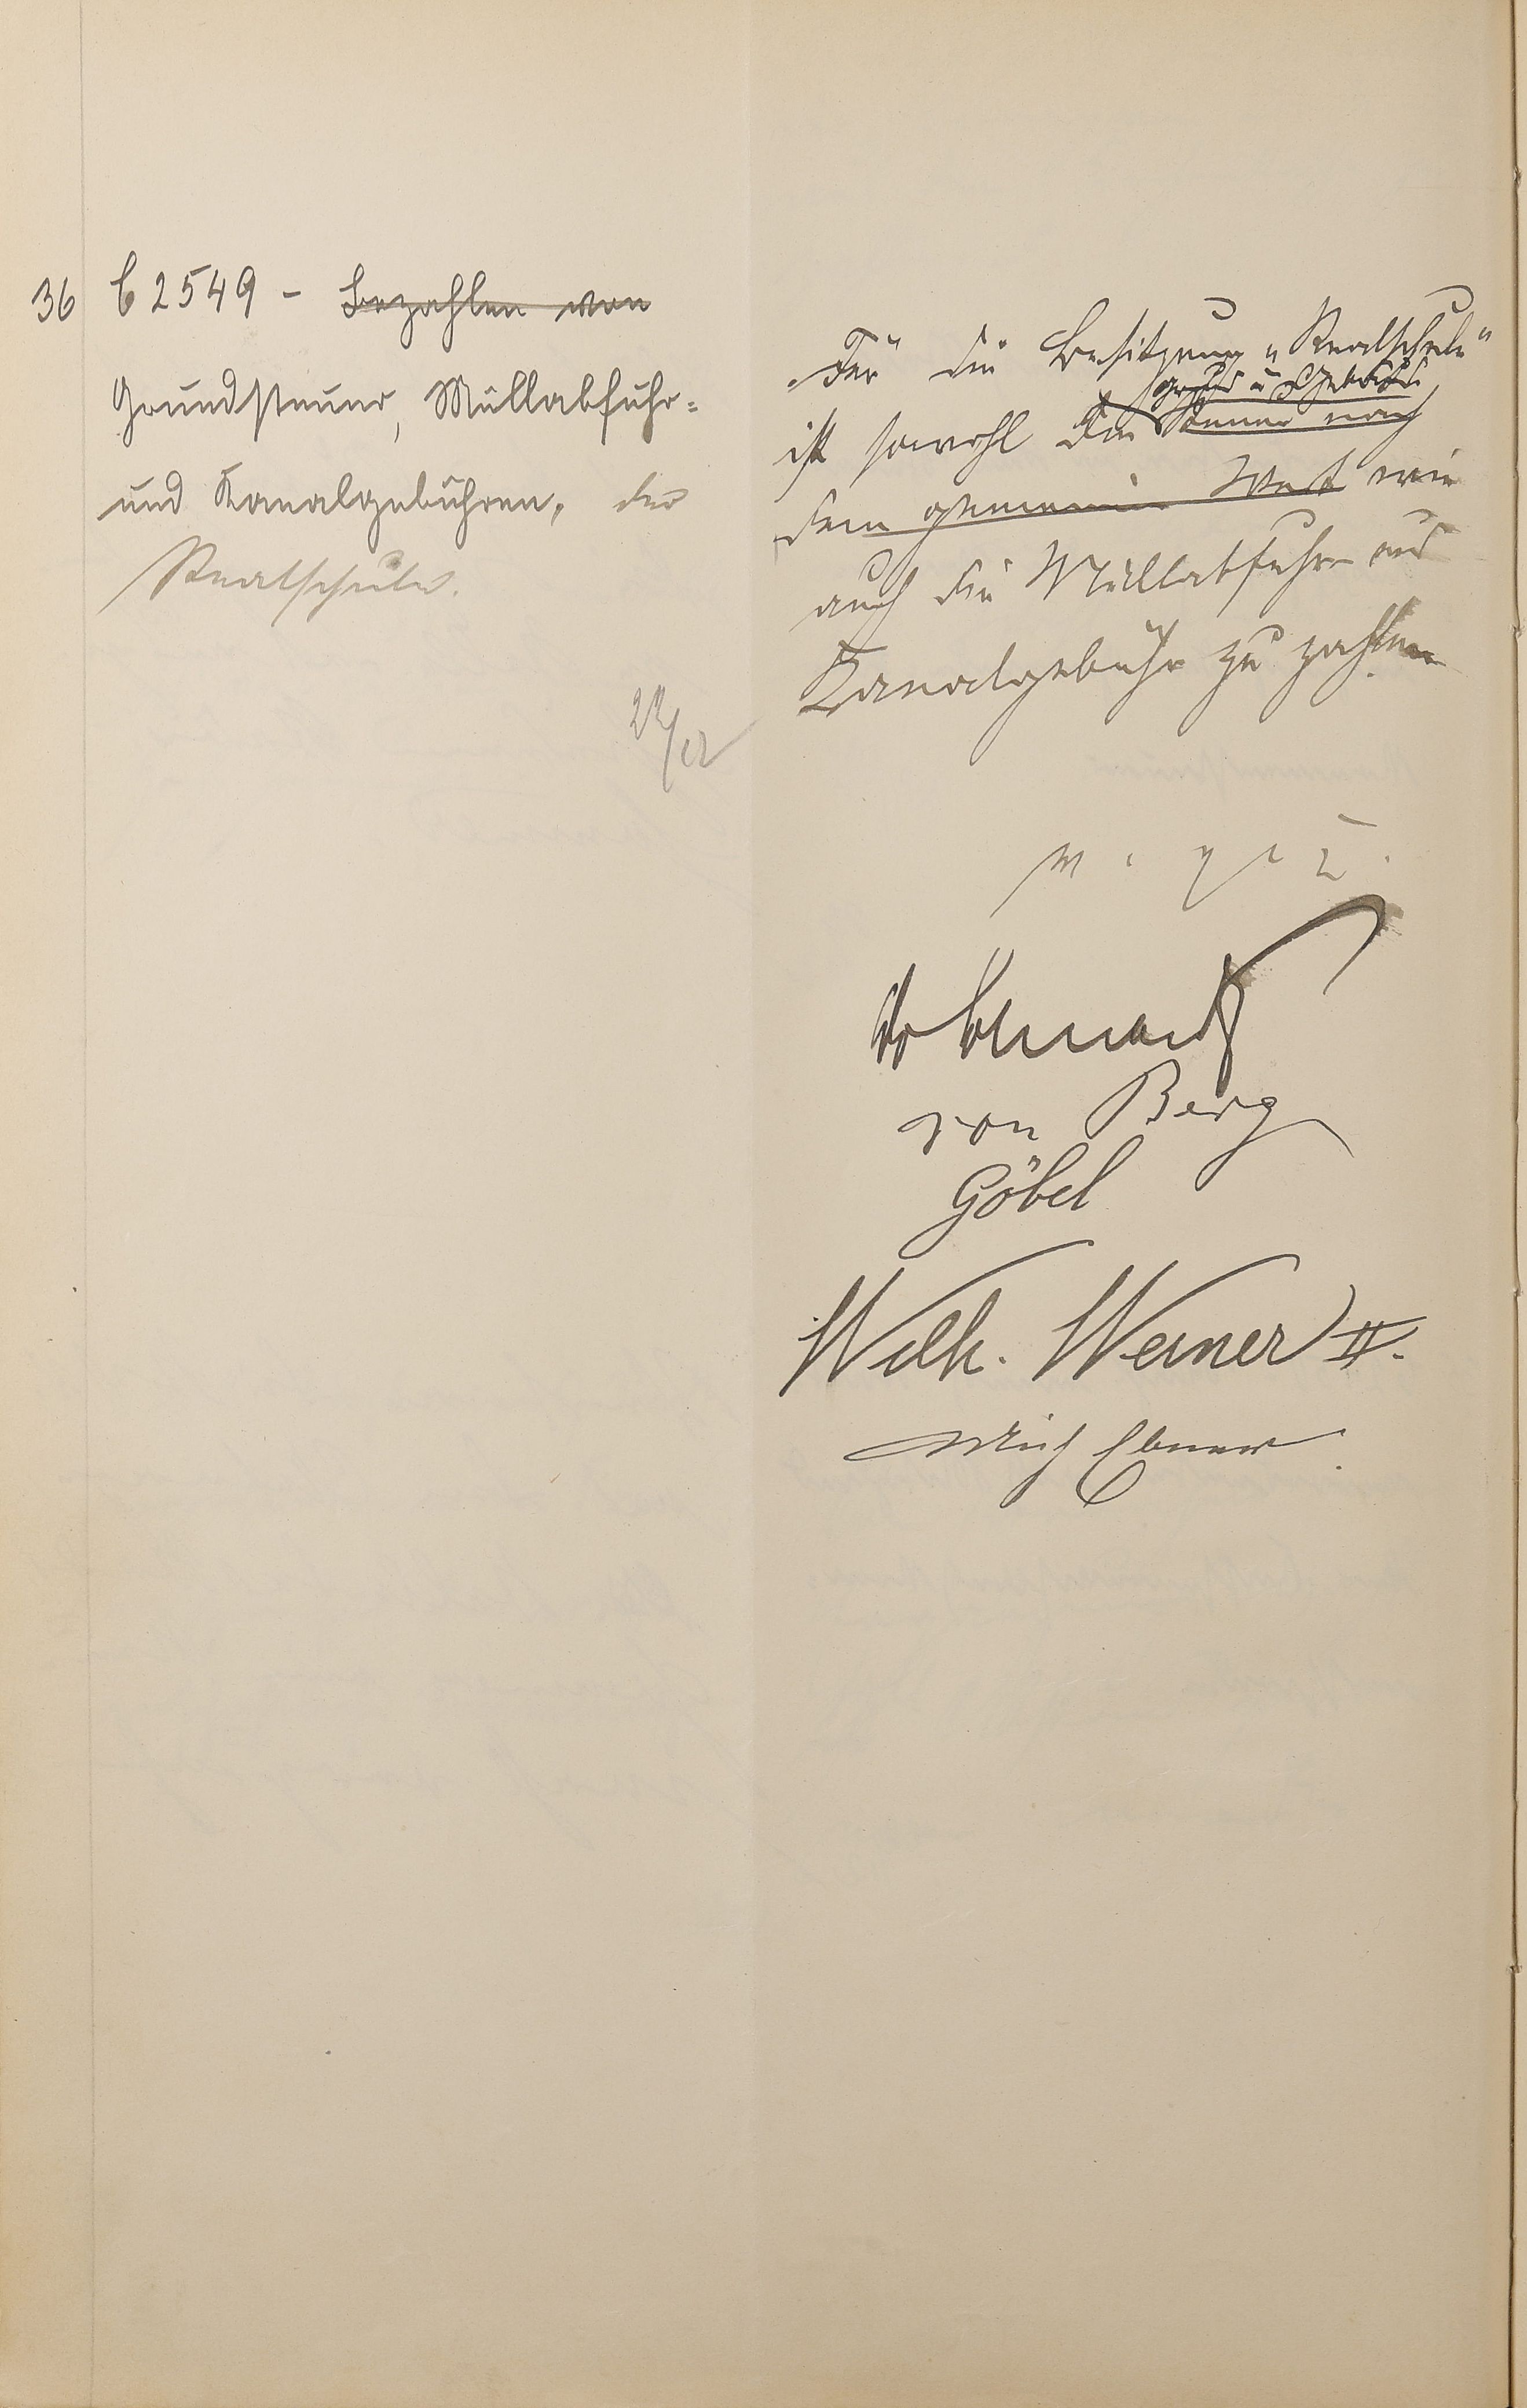 36 C 2549 - Bezahlen von
Grundsteuer, Müllabfuhr-
und Kanalgebühren, der
Realschule.
Für die Besitzung „Realschule"
Grund u Gebäude
ist sowohl die Steuer nach
dem gemeinen Wert wie
auch die Müllabfuhr und
Kanalgebühr zu zahlen
v. g. u.
von Berg
Göbel
Wilh. Werner II.
Ebner